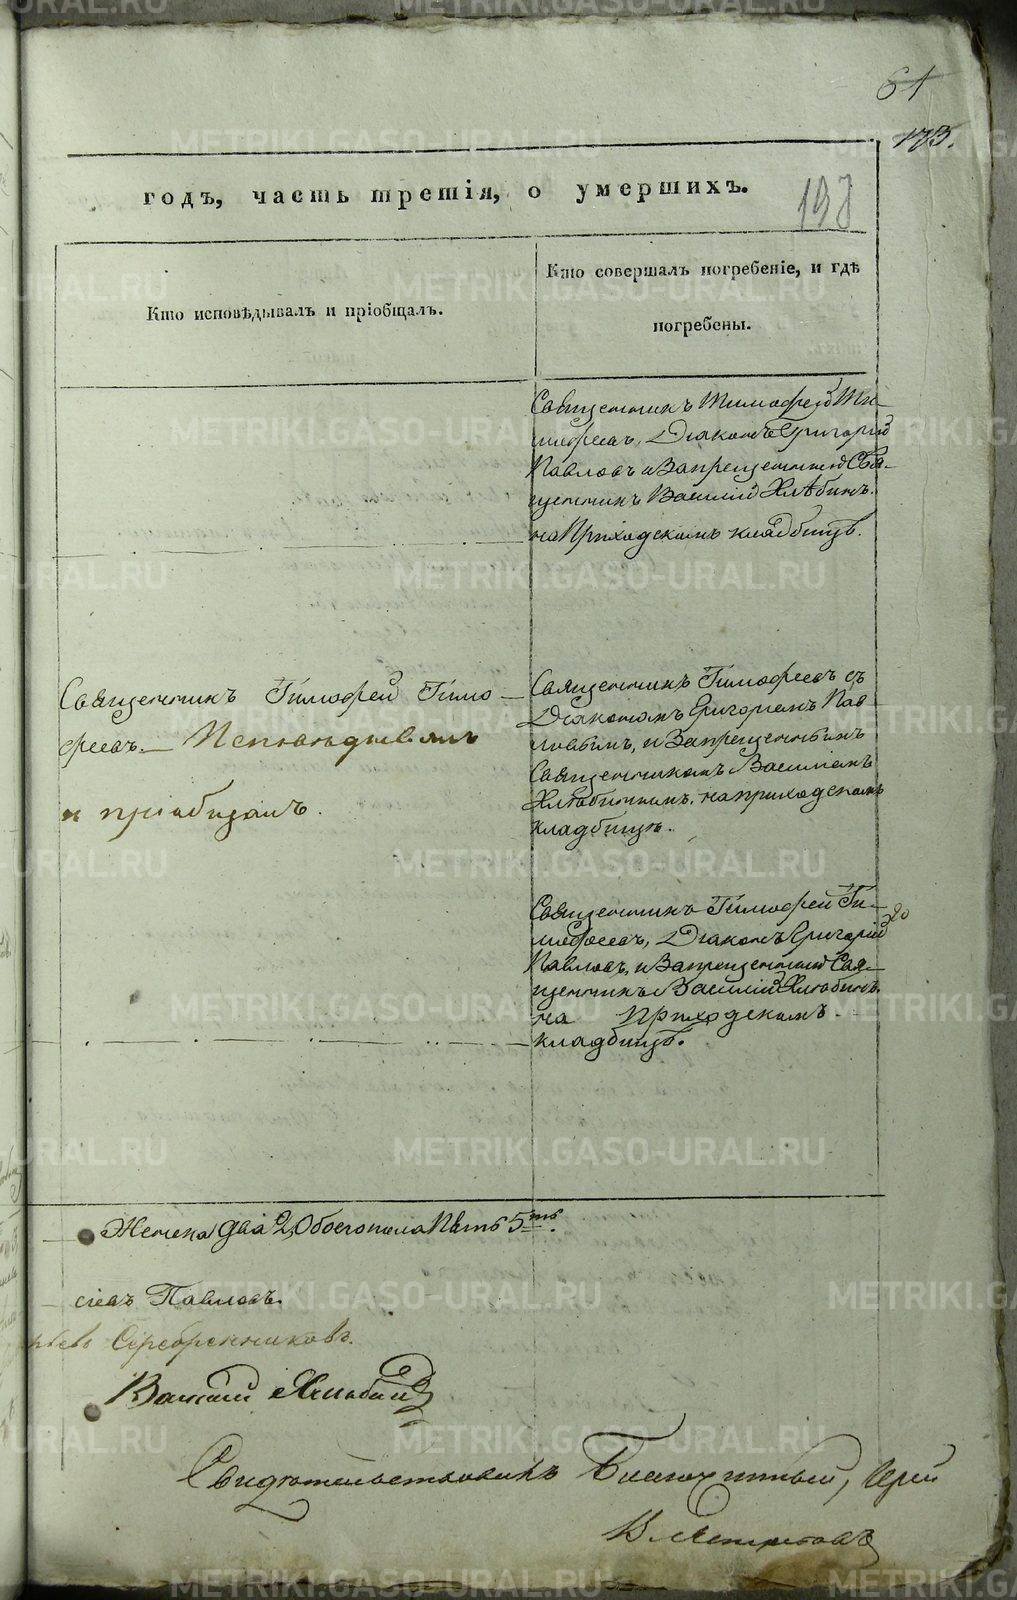 61
173.
годъ, часть третія, о умершихъ.
Кто исповѣдывалъ и пріобщалъ.
Кто совершалъ погребеніе, и гдѣ
погребены.
Священникъ Тимофей Ти-
мофеевъ, Діаконъ Григорій
Павловъ и Запрещенной Свя-
щенникъ Василій Хлѣбинъ.
на Приходскомъ кладбищѣ.
Священникъ Тимофей Тимо-
феевъ. Исповѣдывалъ
и пріобщалъ.
Священникъ Тимофеевъ съ
Діакономъ Григоріемъ Пав
ловымъ, и Запрещеннымъ
Священникомъ Василіемъ
Хлѣбинымъ, на приходскомъ
кладбищѣ.
Священникъ Тимофей Ти-
мофеевъ, Діаконъ Григорій
Павловъ, и Запрещенной Свя-
щенникъ Василій Хлѣбинъ.
на Приходскомъ
кладбищѣ.
Женска два 2, Обоего пола Пять 5ть.
сіевъ Павловъ.
рьевъ Серебренниковъ.
Василій Хлѣбинъ
Свидѣтельствовалъ Благочинный, Іерей
METRIKI.GASO-URAL.RU